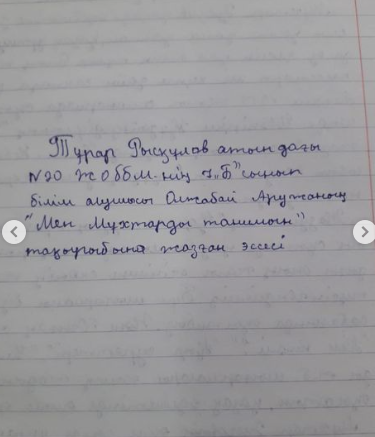 Тұрар Рысқұлов атындағы
N20 ЖОББМ-нің 7 „Б" сынып
білім алушысы Олжабай Аружанның
"Мен Мұхтарды танимын"
тақырыбына жазған эссесі